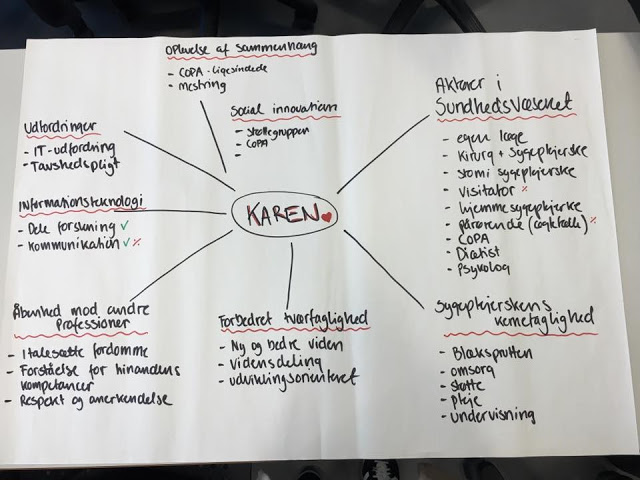 Oplevelse af sammenhæng
- COPA - ligesindede
- mestring
Social innovation
- støttegruppen
- COPA
-
Aktører i
Sundhedsvæsenet
- egen læge
- Kirurg + Sygeplejerske
- stomi sygeplejerske
- visitator
- hjemmesygeplejerske
- pårørende
- COPA
- Diætist
- Psykolog
Udfordringer
- IT-udfordring
- Taushedspligt
Informationsteknologi
- Dele forskning ✓
- Kommunikation ✓
KAREN
Åbenhed mod andre
Professioner
- Italesætte fordomme
- Forståelse for hinandens
kompetancer
- Respekt og anerkendelse
Forbedret tværfaglighed
- Ny og bedre viden
- Vidensdeling
- udviklingsorienteret
Sygeplejerskens
kernefaglighed
- Blæksprutten
- omsorg
- støtte
- pleje
- undervisning